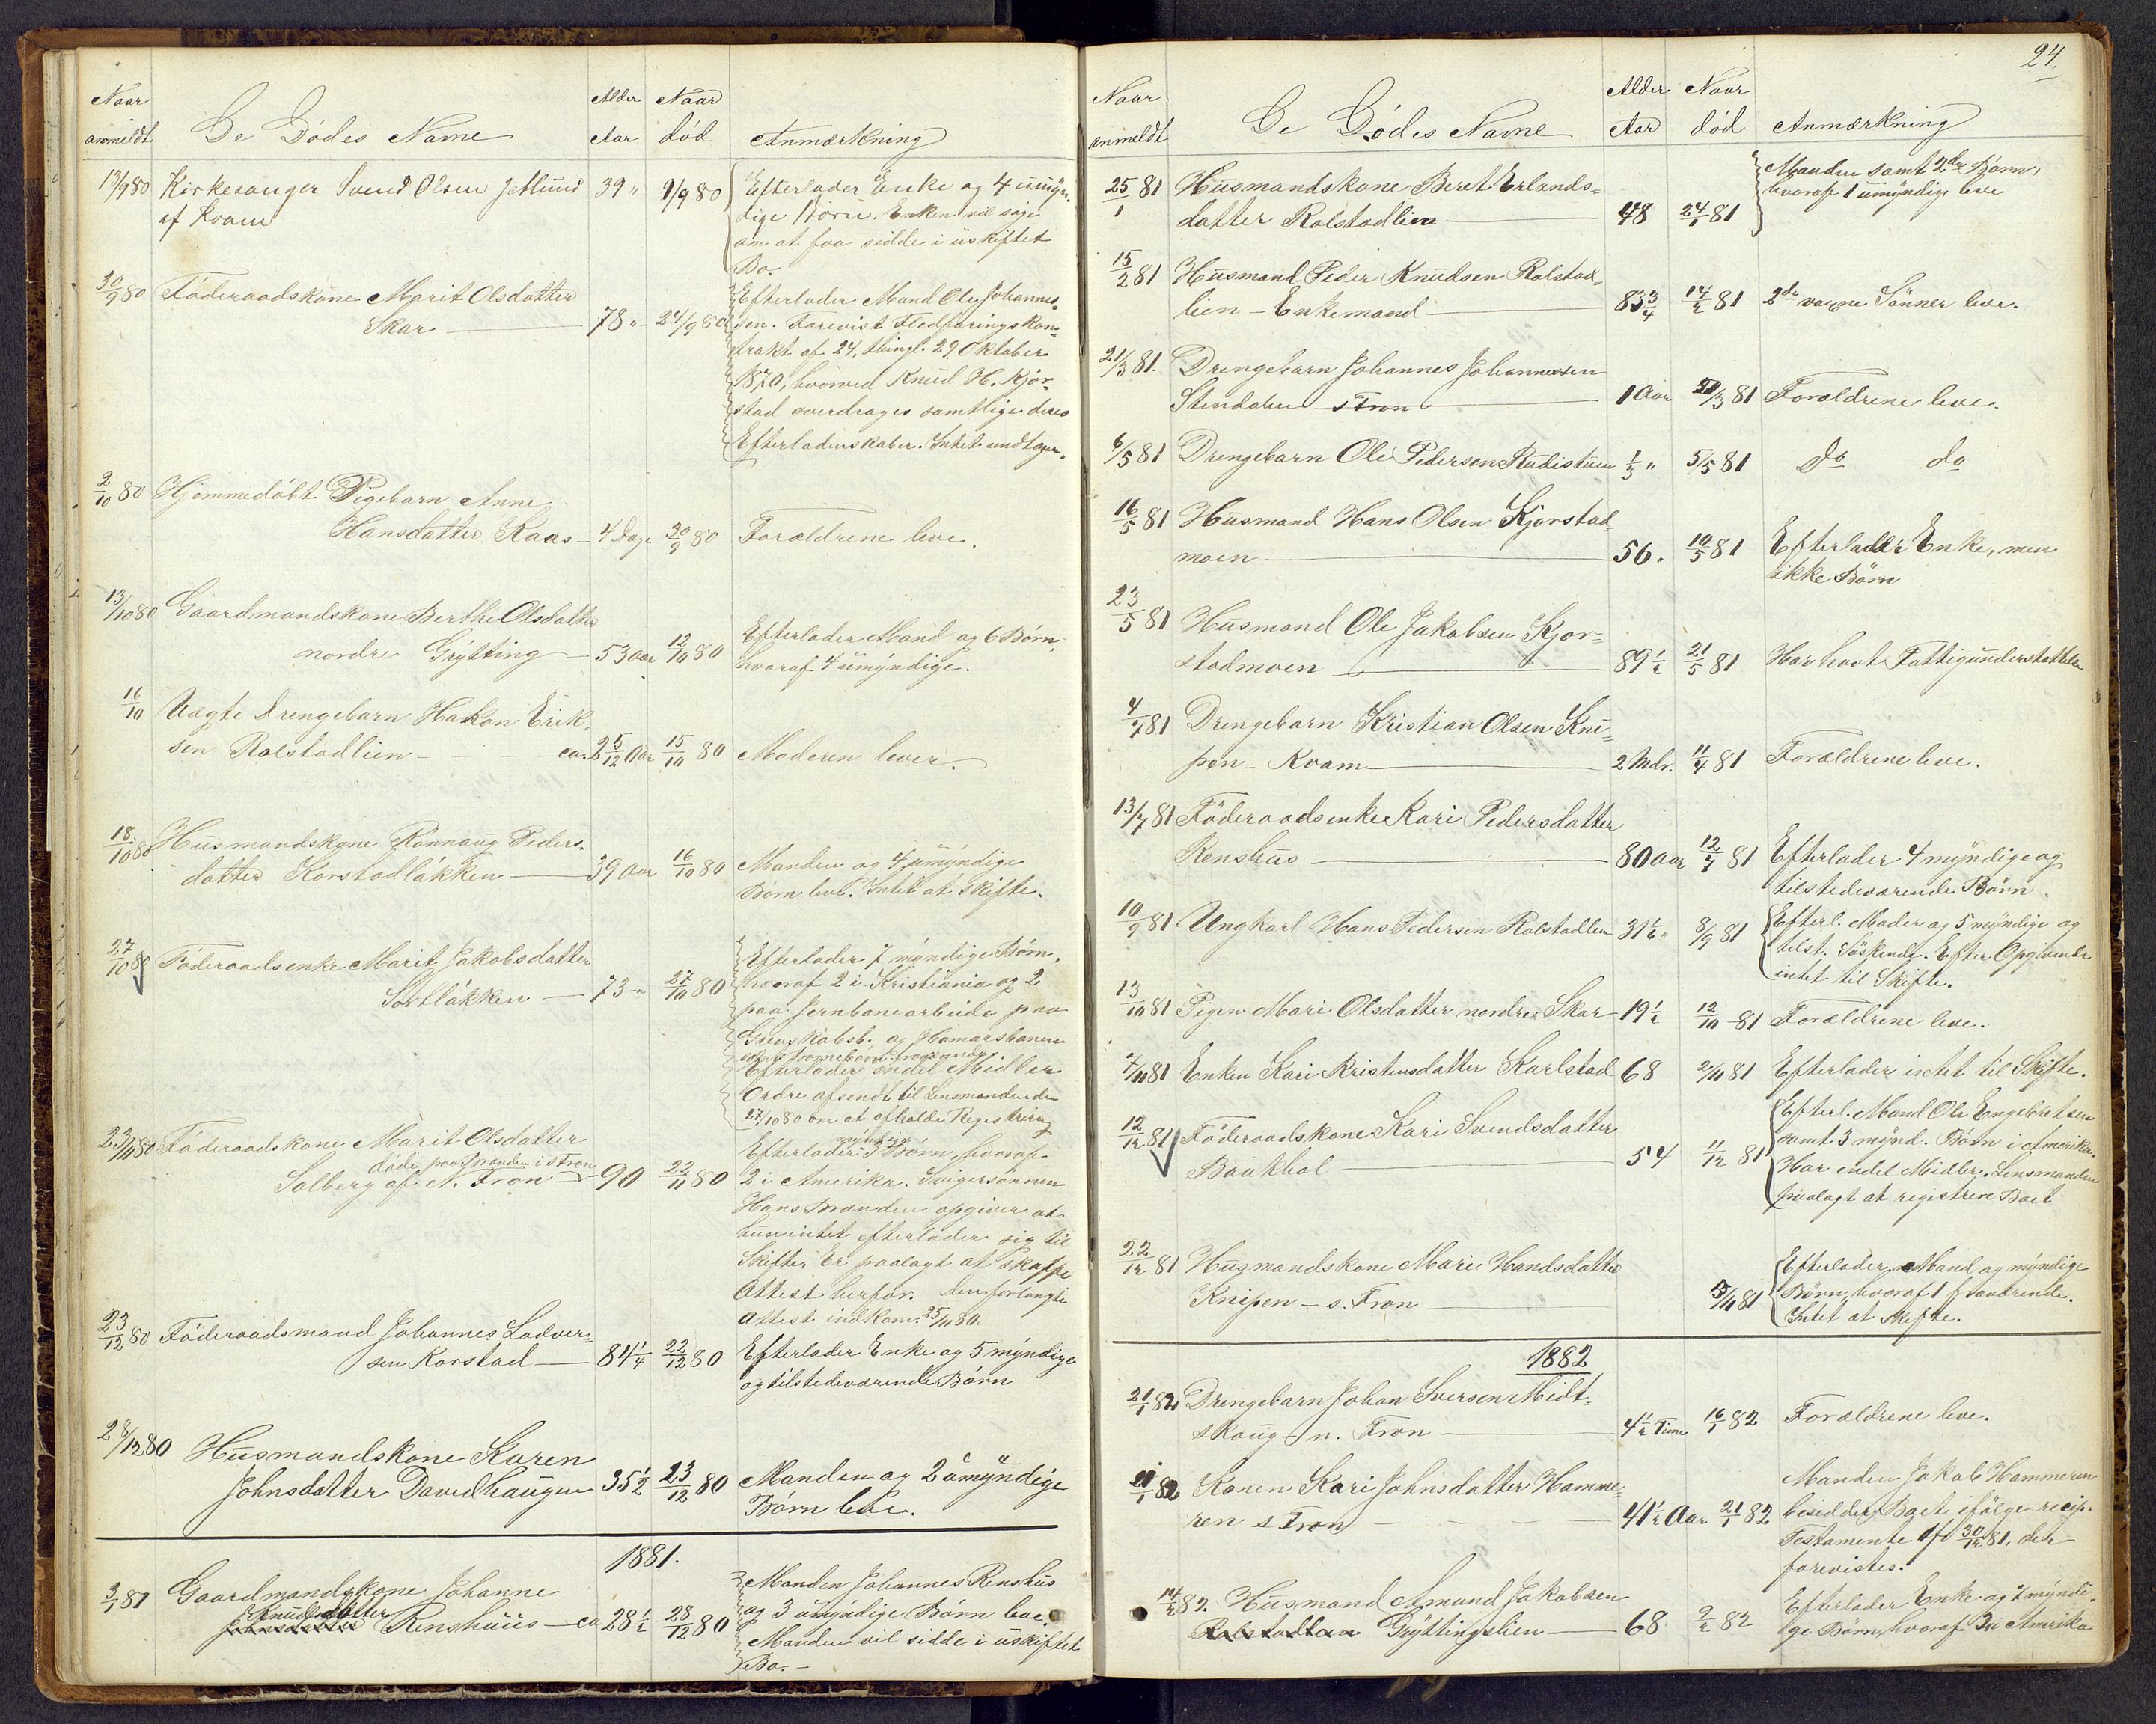 Naar anmeldt
De Dödes Navne
Alder Aar
Naar död
Anmærkning
13/9 80 Kirkesanger Svend Olsen Jetlund 39 " 9/9 80 Efterlader Enke og 4 umyn-
af Kvam dige Börn. Enken vil söge
om at faa sidde i uskiftet
Bo.
30/9 80 Föderaadskone Marit Olsdatter Efterlader Mand Ole Johannes-
Skar 78 " 24/9 80 sen. Forevist Fledföringskon-
trakt af 24, thingl. 29 Oktober
1870, hvorved Knud H. Kjör-
stad overdrages samtlige deres
Efterladenskaber. Intet undtagen.
2/10 80 Hjemmedöbt Pigebarn Anne
Hansdatter Raas 4 Dage 30/9 80 Forældrene leve.
13/10 80 Gaardmandskone Berthe Olsdatter
nordre Grytting 53 aar 12/10 80 Efterlader Mand og 6 Börn,
hvoraf 4 umyndige.
16/10 Uægte Drengebarn Hakon Erik-
sen Rolstadlien ca. 2 5/12 Aar 15/10 80 Moderen lever.
18/10 80 Husmandskone Rönnaug Peders-
datter Korstadlökken 39 Aar 16/10 80 Manden og 4 umyndige
Börn leve. Intet at skifte.
27/10 80 Föderaadsenke Marit Jakobsdatter Efterlader 7 myndige Börn,
Sortlökken 73 " 27/10 80 hvoraf 2 i Kristiania og 2
paa Jernbanearbeide paa
og Hamarsbanen
Efterlader endel Midler
Ordre afsendt til Lensmanden den
27/10 80 om at afholde Registrering
23/11 80 Föderaadskone Marit Olsdatter Efterlader myndige Börn, hvoraf
döde paa Brænden i s Fron
Solberg af N. Fron 90 22/11 80 2 i Amerika. Svigersönnen
Hans Brænden opgiver at
hun intet efterlader sig til
Skifte. Er paalagt at skaffe
Attest herfor. Den forlangte
Attest indkom 25/11 80.
23/12 80 Föderaadsmand Johannes Lodver-
sen Korstad 84 1/4 22/12 80 Efterlader Enke og 5 myndige
og tilstedeværende Börn
28/12 80 Husmandskone Karen
Johnsdatter Davidhaugen 35 1/2 23/12 80 Manden og 2 umyndige
Börn leve.
1881.
3/1 81 Gaardmandskone Johanne Manden Johannes Renshus
Knudsdatter
Johnsdatter Renshuus ca 28 1/2 28/12 80 og 3 umyndige Börn leve
Manden vil sidde i uskiftet
Bo.
24.
Naar anmeldt
De Dödes Navne
Alder Aar
Naar död
Anmærkning
25/1 81 Husmandskone Beret Erlands- Manden samt 2de Börn,
hvoraf 1 umyndig leve
datter Rolstadlien 48 24/1 81
15/2 81 Husmand Peder Knudsen Rolstad-
lien - Enkemand 83 3/4 14/2 81 2de voxne Sönner lever.
21/3 81. Drengebarn Johannes Johannessen
Stendalen s Fron 1 Aar 21/3 81 Forældrene leve.
6/5 81 Drengebarn Ole Pedersen Rudistuen 1/3 " 5/5 81 Do do
16/5 81 Husmand Hans Olsen Kjorstad-
moen 56 " 10/5 81 Efterlader Enke, men
ikke Börn
23/5 81 Husmand Ole Jakobsen Kjor-
stadmoen 89 1/2 21/5 81 Har havt Fattigunderstöttelse
4/7 81 Drengebarn Kristian Olsen Kni-
pen - Kvam 2 Mdr. 11/4 81 Forældrene leve.
13/7 81 Föderaadsenke Kari Pedersdatter
Renshus 80 Aar 12/7 81 Efterlader 4 myndige og
tilstedeværende Börn
10/9 81 Ungkarl Hans Pedersen Rolstadlien 31 1/2 " 8/9 81 Efterl. Moder og 5 myndige og
tilst. Söskende. Efter Opgivende
intet til Skifte.
13/10 81 Pigen Mari Olsdatter nordre Skar 19 1/2 12/10 81 Forældrene leve.
4/11 81 Enken Kari Kristensdatter Karlstad 68 2/11 81 Efterlader intet til Skifte.
12/12 81 Föderaadskone Kari Svendsdatter Efterl. Mand Ole Engebretsen
Baukhol 54 11/12 81 samt 3 mynd. Börn i Amerika.
Har endel Midler. Lensmanden
paalagt at registrere Boet
22/12 81 Husmandskone Mari Handsdatter Efterlader Mand og myndige
Knipen - s. Fron 5/11 81 Börn, hvoraf 1 fraværende.
Intet at skifte.
1882
21/1 82 Drengebarn Johan Iversen Midt-
skoug n. Fron 4 1/2 Time 16/1 82 Forældrene leve.
21/1 82 Konen Kari Johnsdatter Hamme- Manden Jakob Hammeren
ren s Fron 41 1/2 Aar 21/1 82 besidder Boet ifölge recip.
Testamente af 30/12 81, der
forevistes.
14/2 82 Husmand Amund Jakobsen Efterlader Enke og 7 myndi-
Rolstadlien Gryttingslien 68 9/2 82 ge Börn, hvoraf 3 i Amerika